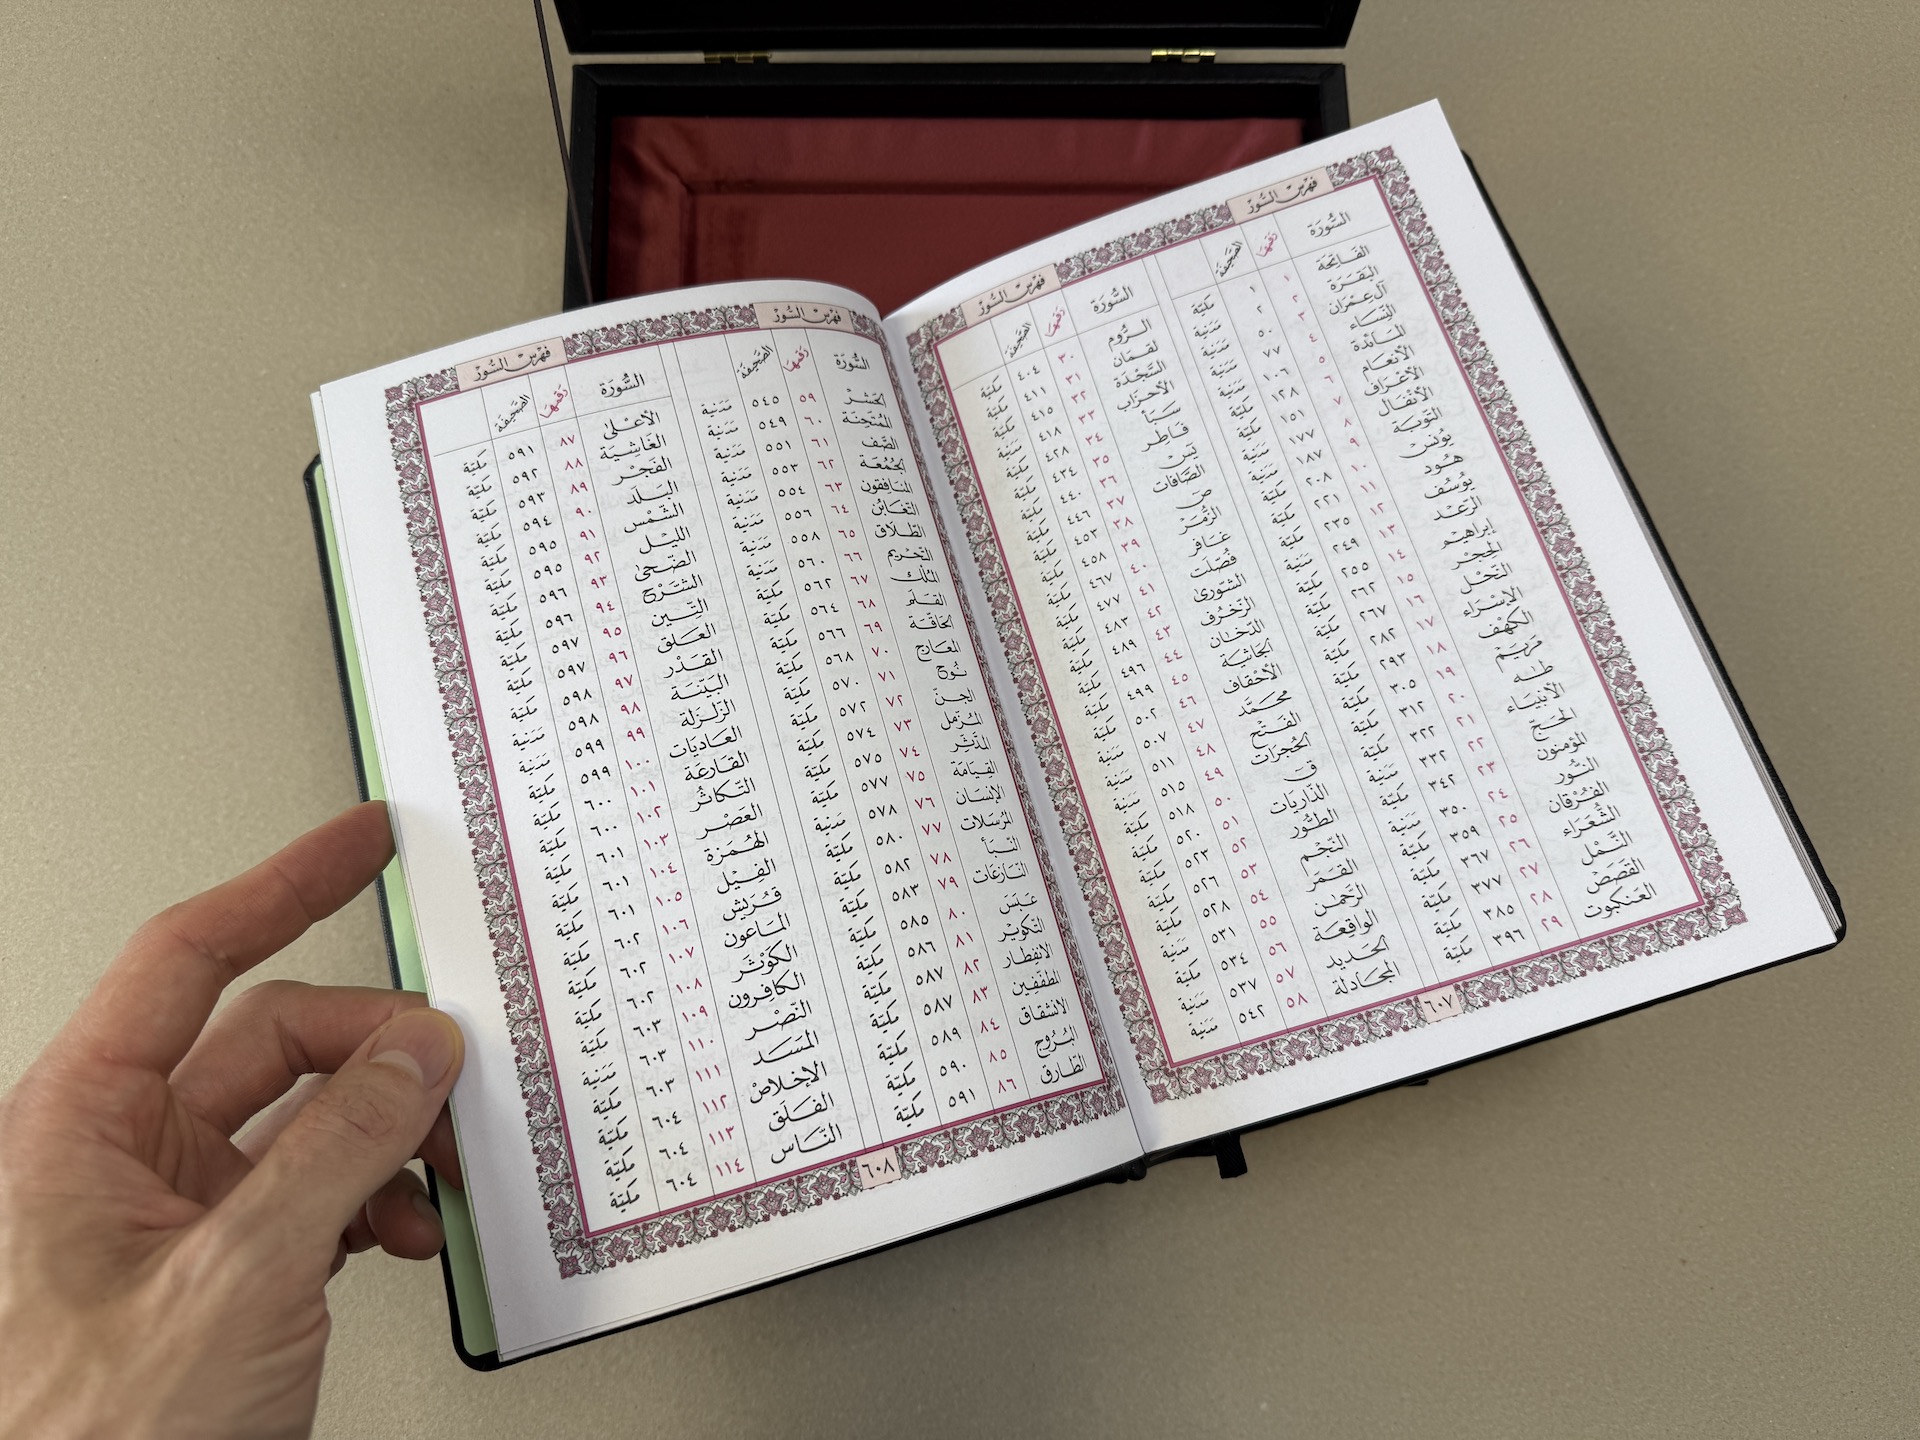 فِهْرِسُ السُّوَرِ
السُّورَة رَقمهَا الصَّحيفَة
الفَاتِحَة ١ ١ مكيّة
البَقَرَة ٢ ٢ مَدَنية
آل عِمْرَان ٣ ٥٠ مَدَنية
النِّسَاء ٤ ٧٧ مَدَنية
المَائدة ٥ ١٠٦ مَدَنية
الأنعَام ٦ ١٢٨ مكيّة
الأعْرَاف ٧ ١٥١ مكيّة
الأنْفَال ٨ ١٧٧ مَدَنية
التّوبَة ٩ ١٨٧ مَدَنية
يُونُس ١٠ ٢٠٨ مكيّة
هُود ١١ ٢٢١ مكيّة
يُوسُف ١٢ ٢٣٥ مكيّة
الرّعْد ١٣ ٢٤٩ مَدَنية
إبراهِيم ١٤ ٢٥٥ مكيّة
الحِجْر ١٥ ٢٦٢ مكيّة
النّحْل ١٦ ٢٦٧ مكيّة
الإسْرَاء ١٧ ٢٨٢ مكيّة
الكهْف ١٨ ٢٩٣ مكيّة
مَريَم ١٩ ٣٠٥ مكيّة
طه ٢٠ ٣١٢ مكيّة
الأنبيَاء ٢١ ٣٢٢ مكيّة
الحَجّ ٢٢ ٣٣٢ مَدَنية
المؤمنون ٢٣ ٣٤٢ مكيّة
النّور ٢٤ ٣٥٠ مَدَنية
الفُرْقان ٢٥ ٣٥٩ مكيّة
الشُّعَرَاء ٢٦ ٣٦٧ مكيّة
النَّمْل ٢٧ ٣٧٧ مكيّة
القَصَصْ ٢٨ ٣٨٥ مكيّة
العَنكبوت ٢٩ ٣٩٦ مكيّة
فِهْرِسُ السُّوَرِ
السُّورَة رَقمهَا الصَّحيفَة
الرُّوم ٣٠ ٤٠٤ مكيّة
لقمَان ٣١ ٤١١ مكيّة
السَّجْدَة ٣٢ ٤١٥ مكيّة
الأحْزاب ٣٣ ٤١٨ مَدَنية
سَبَأ ٣٤ ٤٢٨ مكيّة
فَاطِر ٣٥ ٤٣٤ مكيّة
يسَ ٣٦ ٤٤٠ مكيّة
الصَّافات ٣٧ ٤٤٦ مكيّة
صَ ٣٨ ٤٥٣ مكيّة
الزُّمَر ٣٩ ٤٥٨ مكيّة
غَافر ٤٠ ٤٦٧ مكيّة
فُصّلَت ٤١ ٤٧٧ مكيّة
الشّورىٰ ٤٢ ٤٨٣ مكيّة
الزّخرُف ٤٣ ٤٨٩ مكيّة
الدّخَان ٤٤ ٤٩٦ مكيّة
الجَاثيَة ٤٥ ٤٩٩ مكيّة
الأحْقاف ٤٦ ٥٠٢ مكيّة
محَمَّد ٤٧ ٥٠٧ مَدَنية
الفَتْح ٤٨ ٥١١ مَدَنية
الحُجرَات ٤٩ ٥١٥ مَدَنية
قَ ٥٠ ٥١٨ مكيّة
الذّاريَات ٥١ ٥٢٠ مكيّة
الطّور ٥٢ ٥٢٣ مكيّة
النَّجْم ٥٣ ٥٢٦ مكيّة
القَمَر ٥٤ ٥٢٨ مكيّة
الرَّحمٰن ٥٥ ٥٣١ مَدَنية
الوَاقِعَة ٥٦ ٥٣٤ مكيّة
الحَديد ٥٧ ٥٣٧ مَدَنية
المجَادلة ٥٨ ٥٤٢ مَدَنية
٦٠٧
فِهْرِسُ السُّوَرِ
السُّورَة رَقمهَا الصَّحيفَة
الحَشر ٥٩ ٥٤٥ مَدَنية
المُمتَحِنَة ٦٠ ٥٤٩ مَدَنية
الصَّف ٦١ ٥٥١ مَدَنية
الجُمُعَة ٦٢ ٥٥٣ مَدَنية
المنَافِقون ٦٣ ٥٥٤ مَدَنية
التّغَابُن ٦٤ ٥٥٦ مَدَنية
الطّلَاق ٦٥ ٥٥٨ مَدَنية
التّحْريم ٦٦ ٥٦٠ مَدَنية
المُلك ٦٧ ٥٦٢ مكيّة
القَلَم ٦٨ ٥٦٤ مكيّة
الحَاقّة ٦٩ ٥٦٦ مكيّة
المعَارج ٧٠ ٥٦٨ مكيّة
نُوح ٧١ ٥٧٠ مكيّة
الجِنّ ٧٢ ٥٧٢ مكيّة
المُزّمّل ٧٣ ٥٧٤ مكيّة
المدَّثِّر ٧٤ ٥٧٥ مكيّة
القِيَامَة ٧٥ ٥٧٧ مكيّة
الإنسَان ٧٦ ٥٧٨ مَدَنية
المُرسَلات ٧٧ ٥٨٠ مكيّة
النّبَأ ٧٨ ٥٨٢ مكيّة
النّازعَات ٧٩ ٥٨٣ مكيّة
عَبَسَ ٨٠ ٥٨٥ مكيّة
التّكوير ٨١ ٥٨٦ مكيّة
الانفِطار ٨٢ ٥٨٧ مكيّة
المطفّفِين ٨٣ ٥٨٧ مكيّة
الانشقاق ٨٤ ٥٨٩ مكيّة
البُرُوج ٨٥ ٥٩٠ مكيّة
الطّارق ٨٦ ٥٩١ مكيّة
فِهْرِسُ السُّوَرِ
السُّورَة رَقمهَا الصَّحيفَة
الأعْلىٰ ٨٧ ٥٩١ مكيّة
الغَاشِيَة ٨٨ ٥٩٢ مكيّة
الفَجْر ٨٩ ٥٩٣ مكيّة
البَلَد ٩٠ ٥٩٤ مكيّة
الشّمْس ٩١ ٥٩٥ مكيّة
الليْل ٩٢ ٥٩٥ مكيّة
الضّحىٰ ٩٣ ٥٩٦ مكيّة
الشّرْح ٩٤ ٥٩٦ مكيّة
التّين ٩٥ ٥٩٧ مكيّة
العَلق ٩٦ ٥٩٧ مكيّة
القَدْر ٩٧ ٥٩٨ مكيّة
البَيّنَة ٩٨ ٥٩٨ مَدَنية
الزّلزَلة ٩٩ ٥٩٩ مَدَنية
العَاديَات ١٠٠ ٥٩٩ مكيّة
القَارعَة ١٠١ ٦٠٠ مكيّة
التّكاثُر ١٠٢ ٦٠٠ مكيّة
العَصْر ١٠٣ ٦٠١ مكيّة
الهُمَزة ١٠٤ ٦٠١ مكيّة
الفِيْل ١٠٥ ٦٠١ مكيّة
قُرَيش ١٠٦ ٦٠٢ مكيّة
المَاعون ١٠٧ ٦٠٢ مكيّة
الكَوْثَر ١٠٨ ٦٠٢ مكيّة
الكافِرون ١٠٩ ٦٠٣ مكيّة
النّصْر ١١٠ ٦٠٣ مَدَنية
المَسَد ١١١ ٦٠٣ مكيّة
الإخلَاصْ ١١٢ ٦٠٤ مكيّة
الفَلَق ١١٣ ٦٠٤ مكيّة
النّاس ١١٤ ٦٠٤ مكيّة
٦٠٨